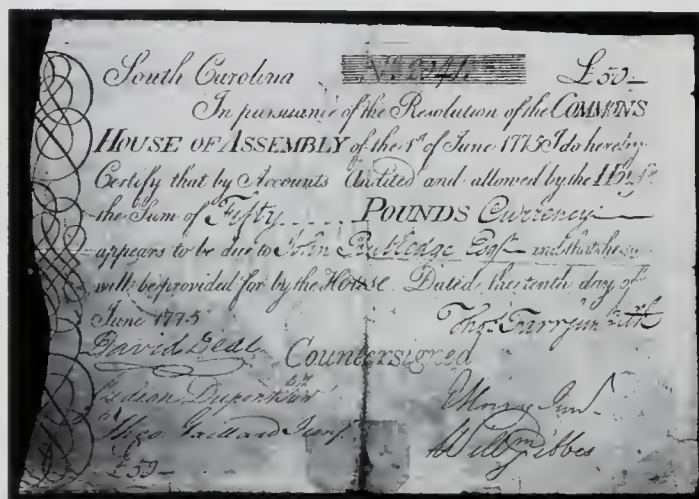 South Carolina No. 2941 £50
In pursuance of the Resolution of the COMMONS
HOUSE OF ASSEMBLY of the 1st of June 1775 I do hereby
Certify that by Accounts Audited and allowed by the House
the Sum of Fifty POUNDS Currency
appears to be due to John Rutledge Esqr and that he
will be provided for by the House Dated the tenth day of
June 1775
Thos Farr
David Deas Countersigned
Gideon Dupont
Theo. Gaillard Junr
Willm Gibbes
£50